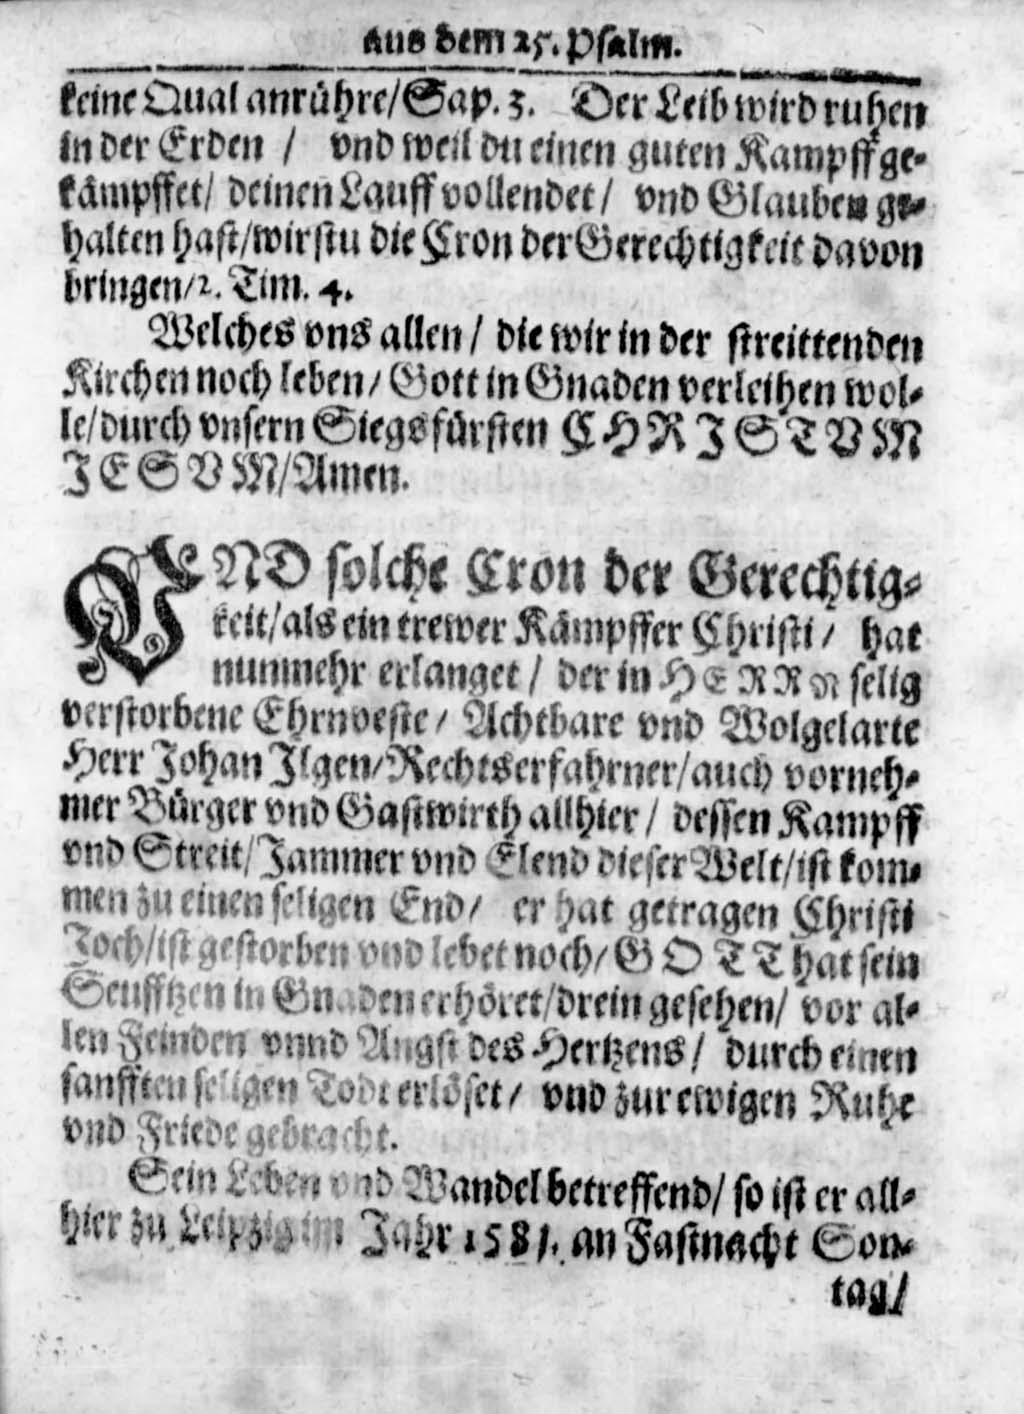 aus dem 25. Psalm.
keine Qual anrühre/ Sap. 3. Der Leib wird ruhen
in der Erden / vnd weil du einen guten Kampff ge-
kämpffet/ deinen Lauff vollendet / vnd Glauben ge-
halten hast/ wirstu die Cron der Gerechtigkeit davon
bringen/ 2. Tim. 4.
Welches vns allen / die wir in der streittenden
Kirchen noch leben / Gott in Gnaden verleihen wol-
le/ durch vnsern Siegsfürsten CHRISTVM
JESVM/ Amen.
VND solche Cron der Gerechtig-
keit/ als ein trewer Kämpffer Christi / hat
nunmehr erlanget / der in HERRN selig
verstorbene Ehrnveste / Achtbare vnd Wolgelarte
Herr Johan Ilgen/ Rechtserfahrner/ auch vorneh-
mer Bürger vnd Gastwirth allhier / dessen Kampff
vnd Streit/ Jammer vnd Elend dieser Welt/ ist kom-
men zu einen seligen End / er hat getragen Christi
Joch/ ist gestorben vnd lebet noch/ GOTT hat sein
Seufftzen in Gnaden erhöret/ drein gesehen/ vor al-
len Feinden vnnd Angst des Hertzens / durch einen
sanfften seligen Todt erlöset / vnd zur ewigen Ruhe
vnd Friede gebracht.
Sein Leben vnd Wandel betreffend/ so ist er all-
hier zu Leipzig im Jahr 1581. an Fastnacht Son-
tag/